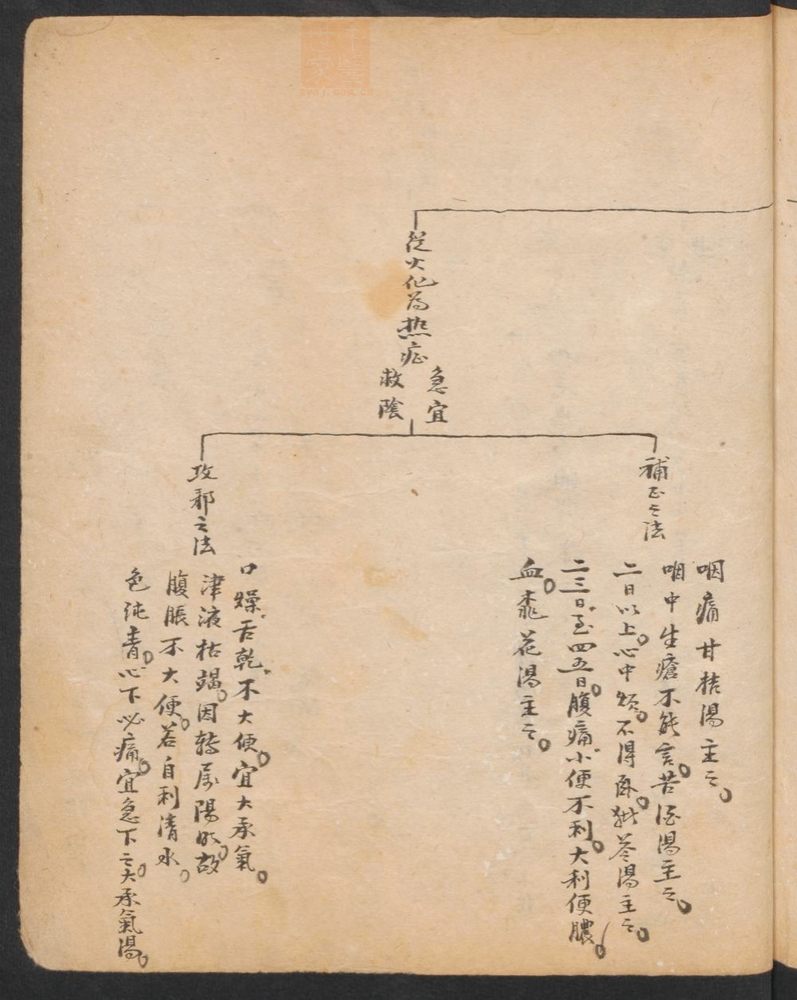 從火化為热症
急宜
救陰
補正之法
咽痛甘桔湯主之。
咽中生瘡不能言。苦酒湯主之。
二日以上。心中烦。不得卧。猪苓湯主之。
二三日。至四五日。腹痛。小便不利。大利便膿
血。桃花湯主之。
攻邪之法
口燥。舌乾。不大便。宜大承氣。
津液枯竭。因转属陽明。故
腹脹不大便。若自利清水。
色纯青。心下必痛。宜急下之。大承氣湯。